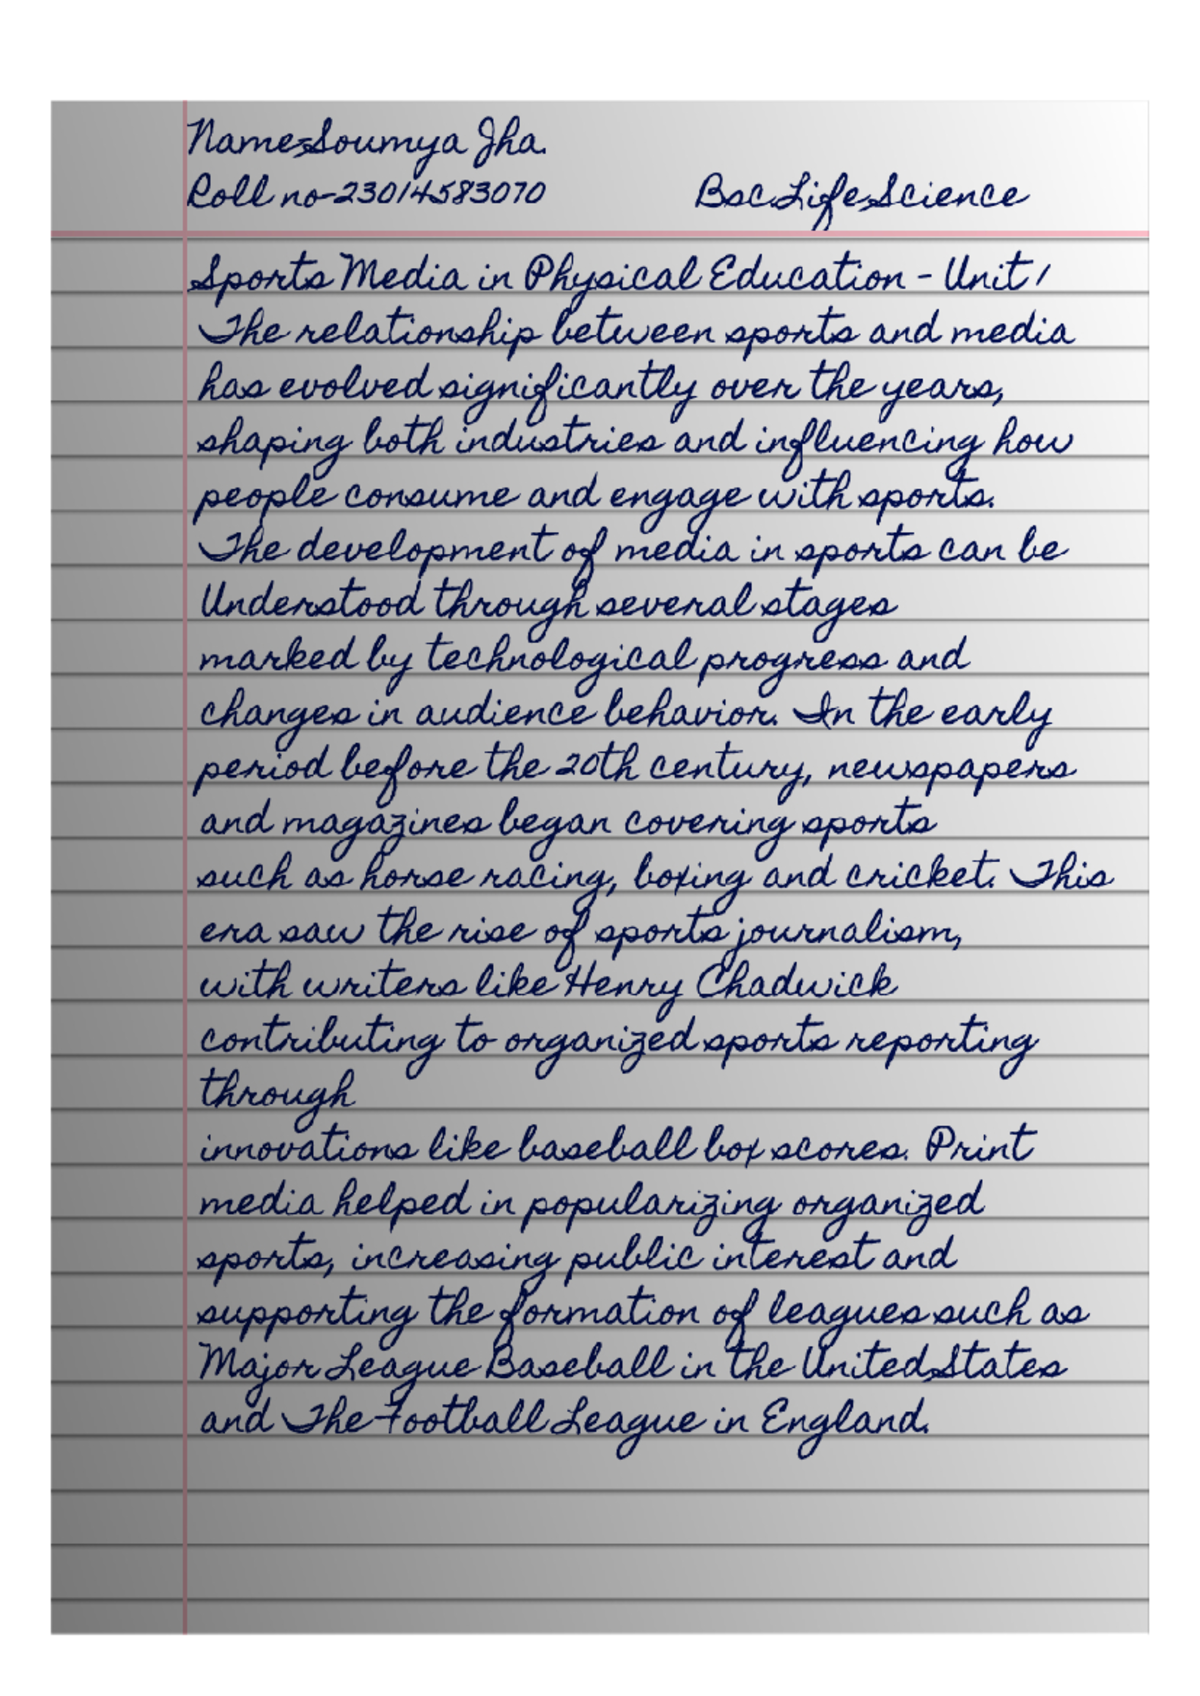 Name=Soumya Jha.
Roll no-23014583070 Bsc.Life Science
Sports Media in Physical Education - Unit 1
The relationship between sports and media
has evolved significantly over the years,
shaping both industries and influencing how
people consume and engage with sports.
The development of media in sports can be
Understood through several stages
marked by technological progress and
changes in audience behavior. In the early
period before the 20th century, newspapers
and magazines began covering sports
such as horse racing, boxing and cricket. This
era saw the rise of sports journalism,
with writers like Henry Chadwick
contributing to organized sports reporting
through
innovations like baseball box scores. Print
media helped in popularizing organized
sports, increasing public interest and
supporting the formation of leagues such as
Major League Baseball in the United States
and The Football League in England.